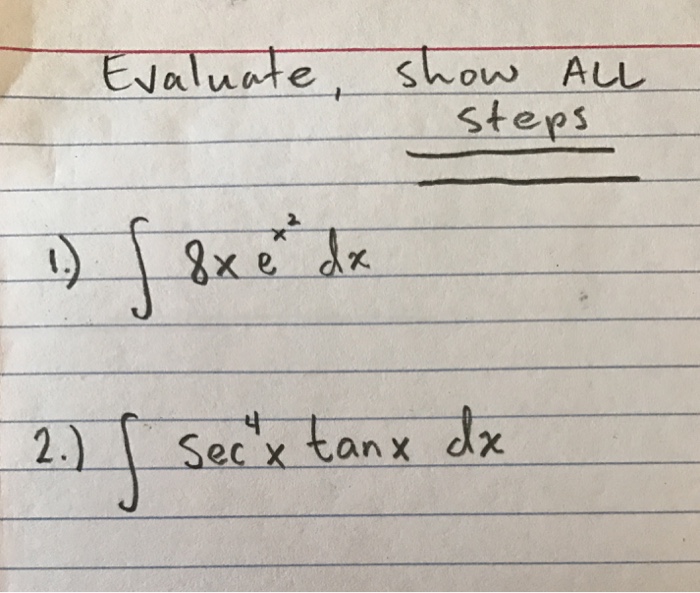 Evaluate, show ALL
steps
1.) ∫ 8x e^{x^2} dx
2.) ∫ sec^4 x tan x dx